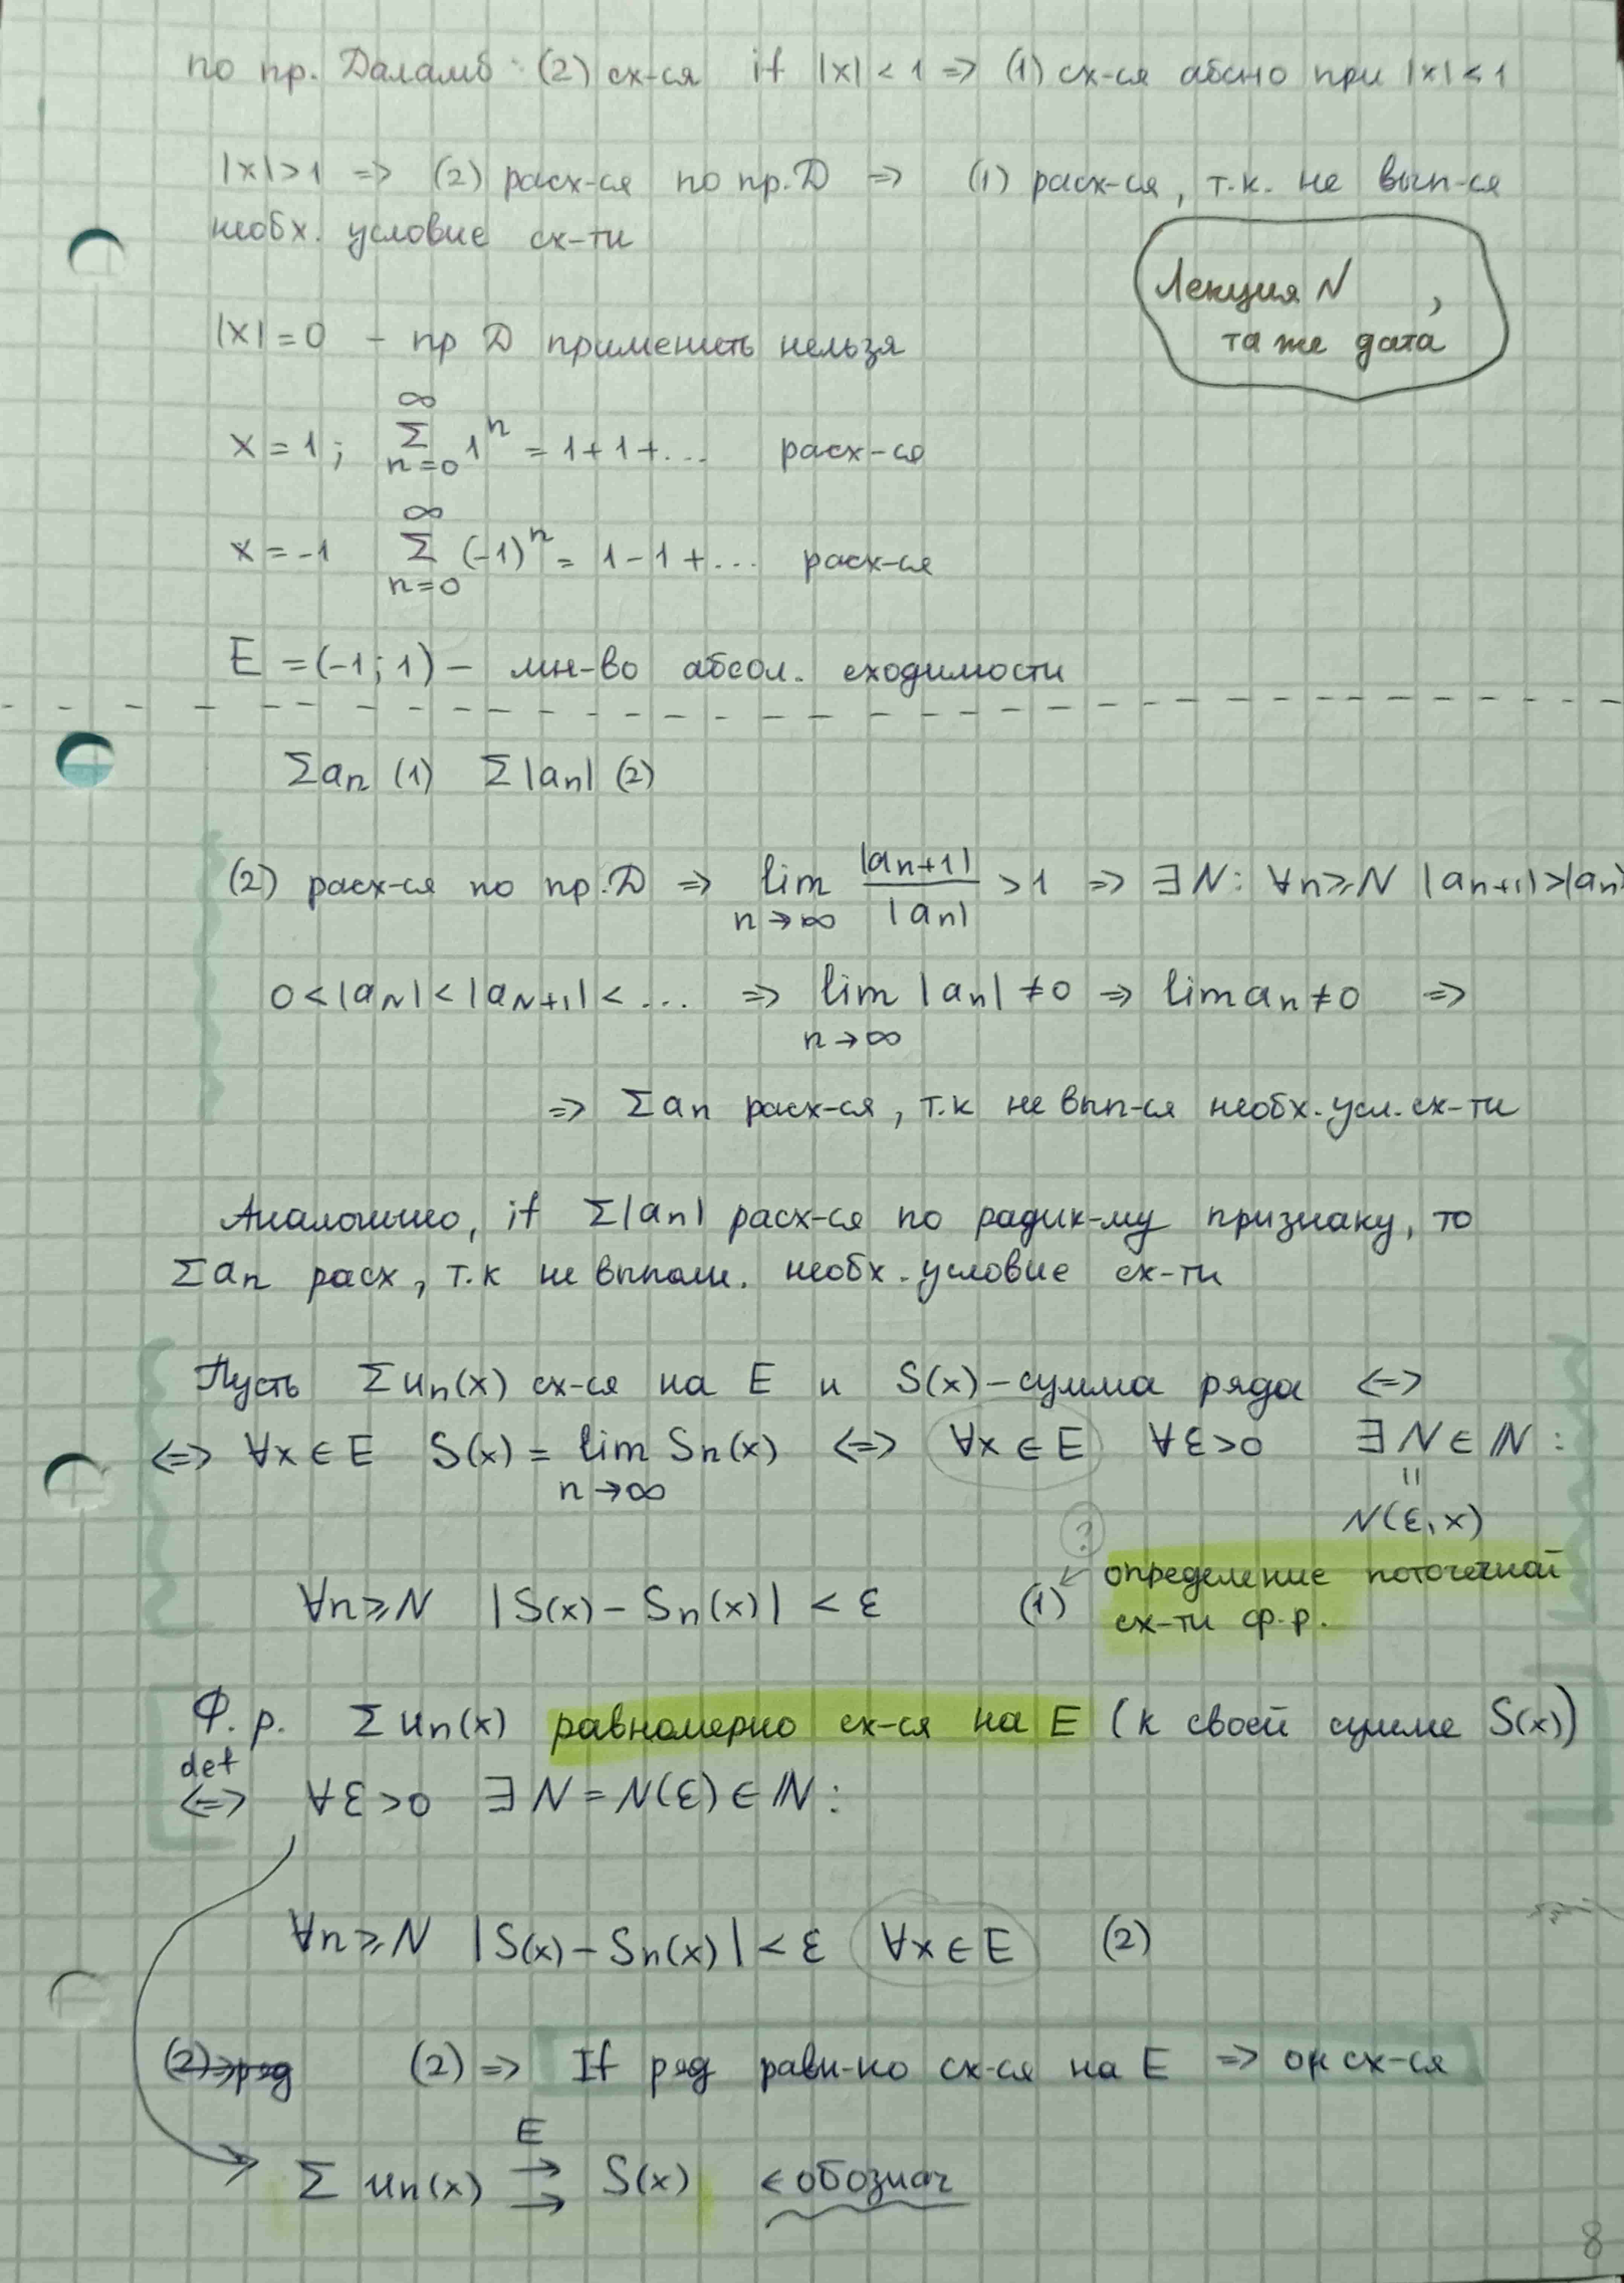 по пр. Даламб: (2) сх-ся if |x| < 1 => (1) сх-ся абсно при |x| < 1
|x| > 1 => (2) расх-ся по пр. Д => (1) расх-ся, т.к. не вып-ся
необх. условие сх-ти
Лекция N ,
та же дата
|x| = 0 – пр Д применить нельзя
x = 1; ∞Σn=0 1^n = 1 + 1 + ... расх-ся
x = -1 ∞Σn=0 (-1)^n = 1 - 1 + ... расх-ся
E = (-1; 1) – мн-во абсол. сходимости
Σan (1) Σ|an| (2)
(2) расх-ся по пр. Д => lim n→∞ |an+1| / |an| > 1 => ∃N: ∀n ≥ N |an+1| > |an|
0 < |aN| < |aN+1| < ... => lim n→∞ |an| ≠ 0 => lim an ≠ 0 =>
=> Σan расх-ся, т.к не вып-ся необх. усл. сх-ти
Аналогично, if Σ|an| расх-ся по радик-му признаку, то
Σan расх, т.к не выполн. необх. условие сх-ти
Пусть Σun(x) сх-ся на E и S(x) – сумма ряда <=>
<=> ∀x ∈ E S(x) = lim n→∞ Sn(x) <=> ∀x ∈ E ∀ε > 0 ∃N ∈ ℕ:
=
N(ε, x)
?
∀n ≥ N |S(x) - Sn(x)| < ε (1) ← определение поточечной
сх-ти ф.р.
Ф. р. Σun(x) равномерно сх-ся на E (к своей сумме S(x))
def
<=> ∀ε > 0 ∃N = N(ε) ∈ ℕ:
∀n ≥ N |S(x) - Sn(x)| < ε ∀x ∈ E (2)
(2)=>ряд (2) => If ряд равн-но сх-ся на E => он сх-ся
E
Σ un(x) →→ S(x) < обознач
8